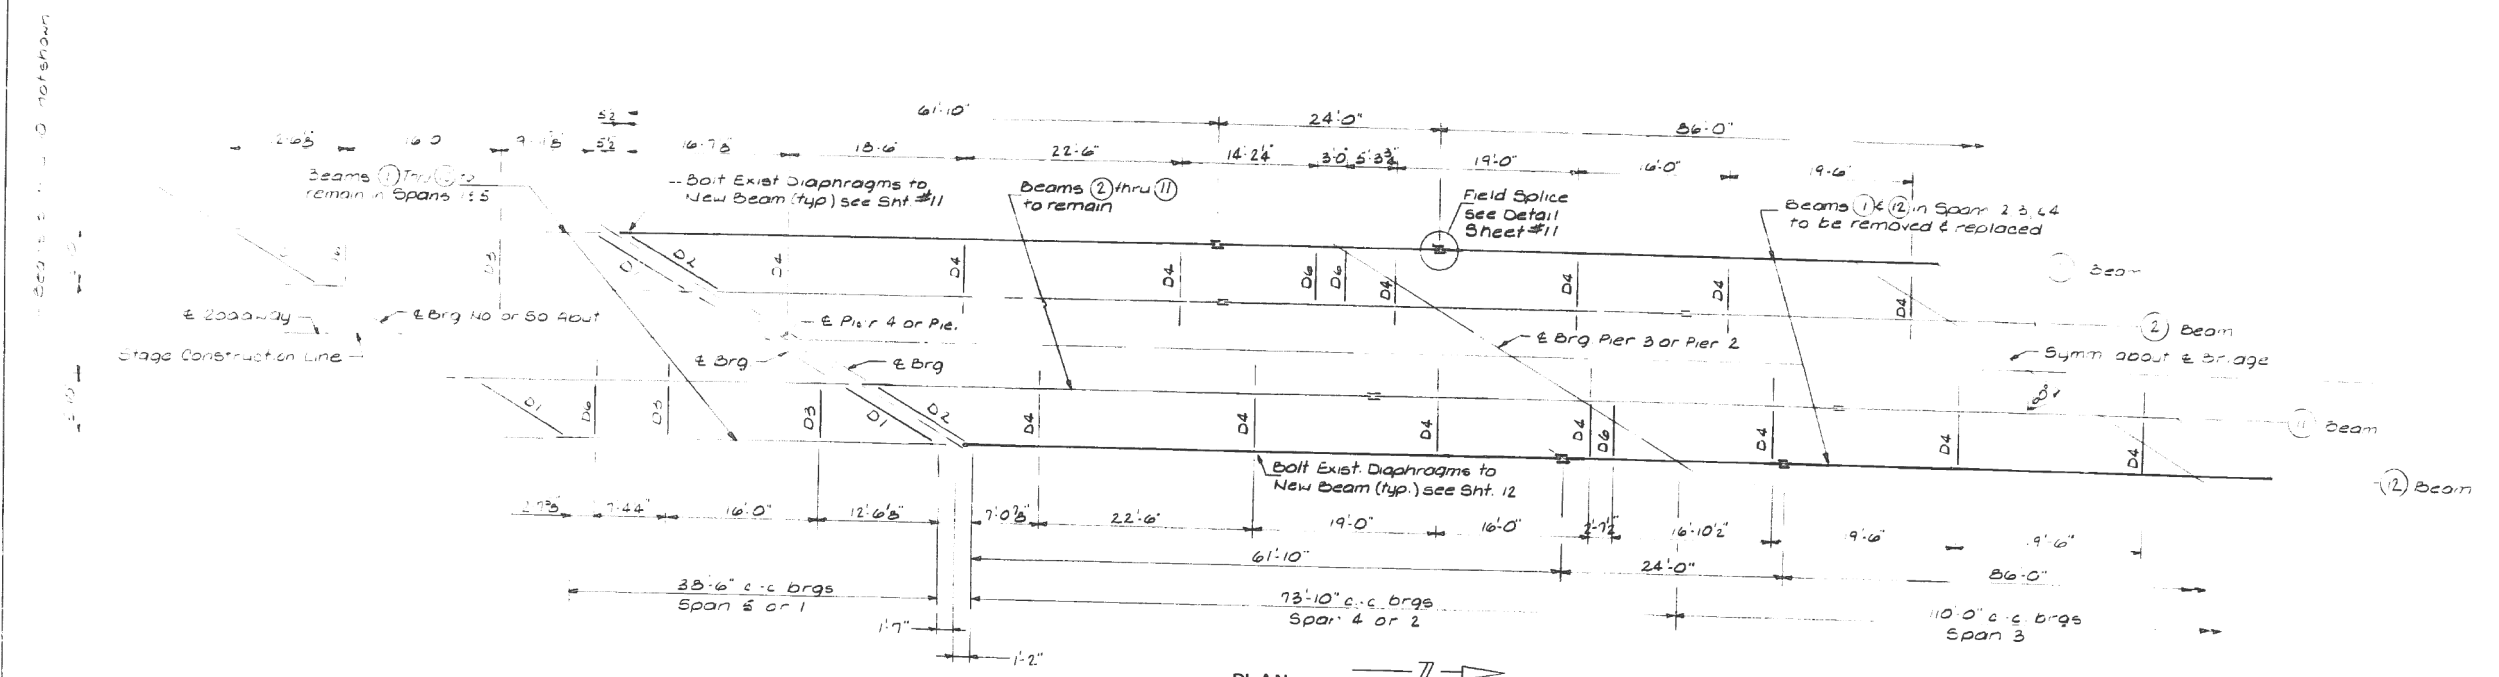 61'-10"
24'-0"
86'-0"
18'-6"
22'-6"
14'-2¼"
3'-0"
5'-3¾"
19'-0"
16'-0"
19'-6"
Beams ① Thru
remain in Spans 1 & 5
Bolt Exist Diaphragms to
New Beam (typ) see Sht. #11
Beams ② thru ⑪
to remain
Field Splice
see Detail
Sheet #11
Beams ① & ⑫ in Span 2 3, & 4
to be removed & replaced
not shown
D3
D2
D4
D4
D4
D6
D6
D4
D4
D4
D4
Beam
② Beam
℄ Roadway
℄ Brg No or So Abut
Stage Construction Line
℄ Pier 4 or
℄ Brg
℄ Brg
℄ Brg Pier 3 or Pier 2
Symm about ℄ Bridge
D1
D6
D3
D3
D1
D2
D4
D4
D4
D4
D6
D4
D4
D4
⑪ Beam
⑫ Beam
Bolt Exist. Diaphragms to
New Beam (typ.) see Sht. 12
16'-0"
12'-6⅛"
7'-0⅞"
22'-6"
19'-0"
16'-0"
2'-7½"
16'-10½"
9'-6"
61'-10"
24'-0"
86'-0"
38'-6" c-c brgs
Span 5 or 1
73'-10" c-c brgs
Span 4 or 2
110'-0" c-c brgs
Span 3
1'-7"
1'-2"
PLAN